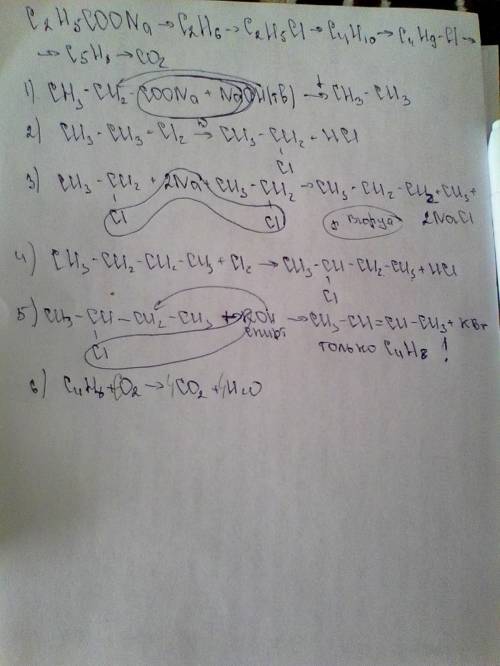 C2H5COONa → C2H6 → C2H5Cl → C4H10 → C4H9Cl →
→ C5H8 → CO2
1) CH3-CH2-COONa + NaOH(тв) →t CH3-CH3
2) CH3-CH3-Cl2 → CH3-CH2-HCl
Cl
3) CH3-CH2 + 2Na + CH3-CH2 → CH3-CH2-CH2-CH3 +
Cl Cl р. Вюрца 2NaCl
4) CH3-CH2-CH2-CH3 + Cl2 → CH3-CH-CH2-CH3 + HCl
Cl
5) CH3-CH-CH2-CH3 + KOH → CH3-CH=CH-CH3 +
Cl спирт только C4H8 !
6) C4H8 + 6O2 → 4CO2 + 4H2O